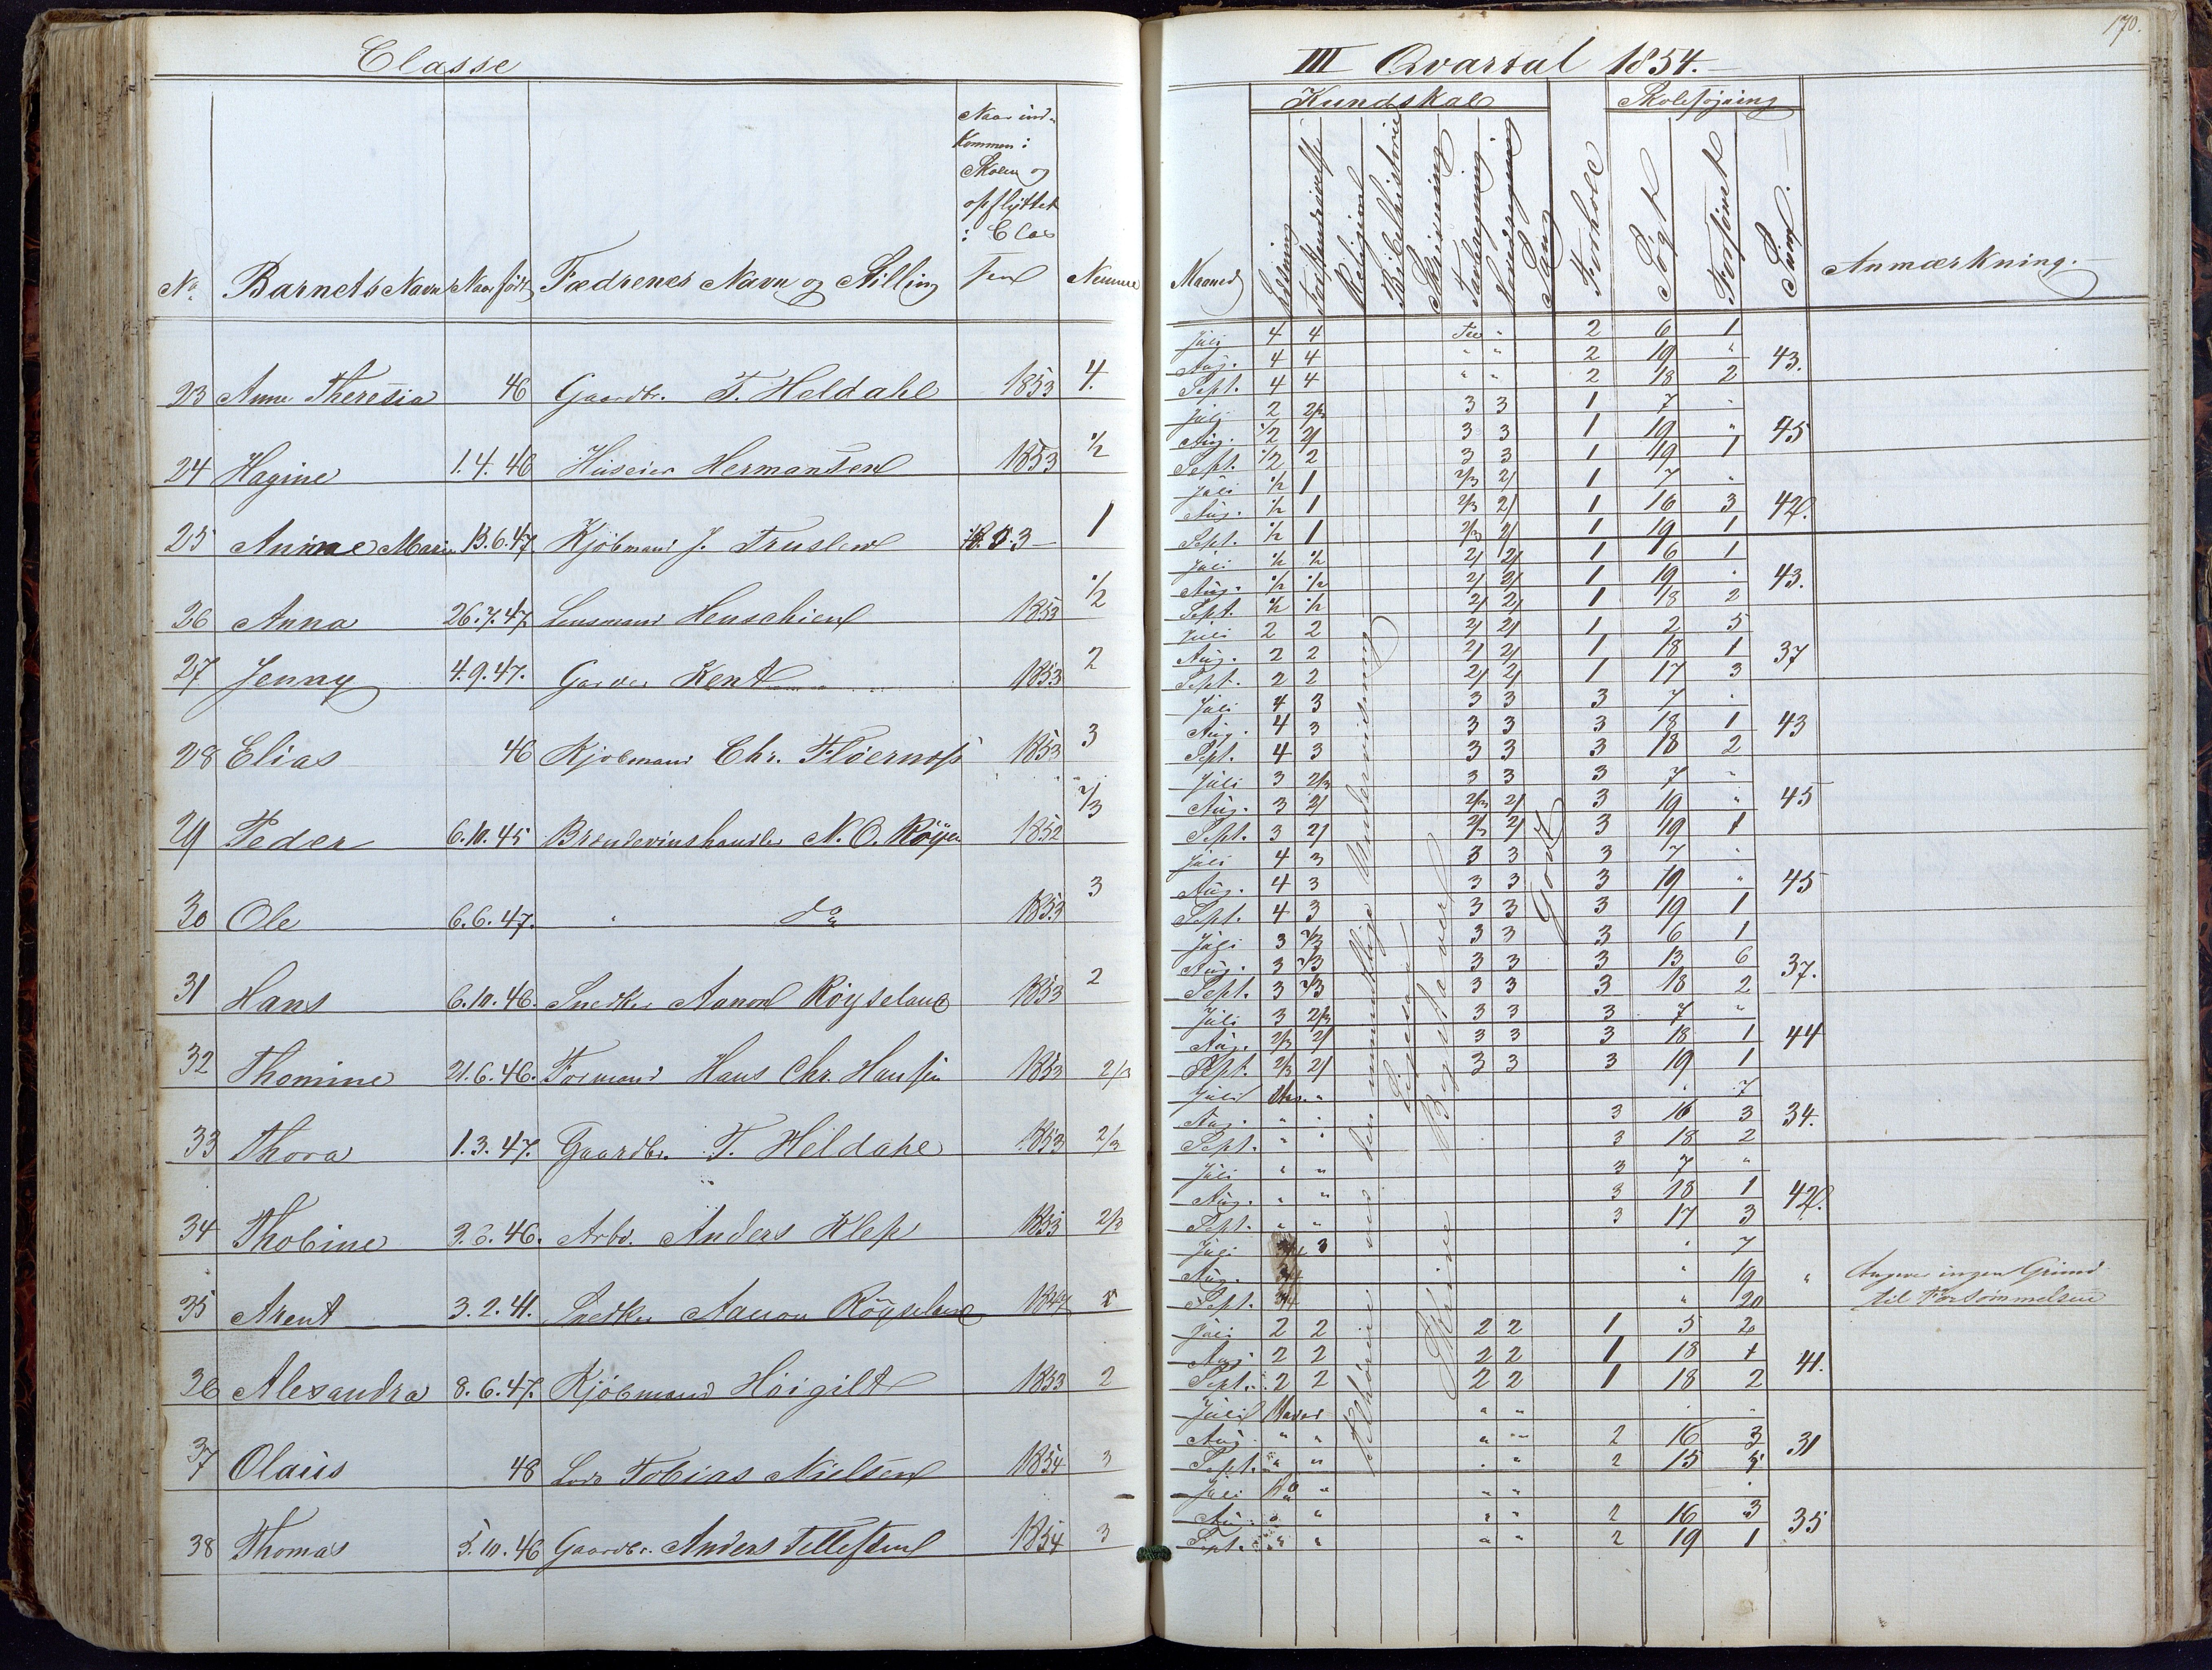 170.
Classe
III Qvartal 1854.
Kundskab
Skolesøgning
No
Barnets Navn
Naar født
Fædrenes Navn og Stilling
Naar ind-
kommen i
Skolen og
opflyttet
i Clas
sen
Nemme
Maaned
Religion
Bibelhistorie
Skrivning
Tavleregning
Hovedregning
Sang
Forhold
Søgt
Forsømt
Sum
Anmærkning.
23 Anne Theresia 46 Gaardbr. T. Heldahl 1853 4.
Juli 4 4 2 6 1
Aug. 4 4 " " 2 19 " 43.
Sept. 4 4 " " 2 18 2
24 Hagine 1.4.46 Huseier Hermansen 1853 1/2
Juli 2 2/3 3 3 1 7 "
Aug. 1/2 2/ 3 3 1 19 " 45
Sept. 1/2 2 3 3 1 19 1
25 Anne Marie 13.6.47 Kjöbmand J. Truslew 1853 1
Juli 1/2 1 2/3 2/ 1 7 "
Aug. 1/2 1 2/3 2/ 1 16 3 42.
Sept. 1/2 1 2/3 2/ 1 19 1
26 Anna 26.7.47 Lensmand Henschien 1853 1/2
Juli 1/2 1/2 2/ 2/ 1 6 1
Aug. 1/2 1/2 2/ 2/ 1 19 " 43.
Sept. 1/2 1/2 2/ 2/ 1 18 2
27 Jenny 4.9.47. Garver Kent 1853 2
Juli 2 2 2/ 2/ 1 2 5
Aug. 2 2 2/ 2/ 1 18 1 37
Sept. 2 2 2/ 2/ 1 17 3
28 Elias 46 Kjöbmand Chr. Fløernæss 1853 3
Juli 4 3 3 3 3 7 "
Aug. 4 3 3 3 3 18 1 43
Sept. 4 3 3 3 3 18 2
29 Peder 6.10.45 Brændevinshandler N. O. Röyer 1852 2/3
Juli 3 2/3 3 3 3 7 "
Aug. 3 2/ 2/3 2/ 3 19 " 45
Sept. 3 2/ 2/3 2/ 3 19 1
30 Ole 6.6.47. " do 1853 3
Juli 4 3 3 3 3 7 "
Aug. 4 3 3 3 3 19 " 45
Sept. 4 3 3 3 3 19 1
31 Hans 6.10.46. Snedker Aanon Röyseland 1853 2
Juli 3 2/3 3 3 3 6 1
Aug. 3 2/3 3 3 3 13 6 37.
Sept. 3 2/3 3 3 3 18 2
32 Thomine 21.6.46. Formand Hans Chr. Hansen 1853 2/3
Juli 3 2/3 3 3 3 7 "
Aug. 2/3 2/ 3 3 3 18 1 44
Sept. 2/3 2/ 3 3 3 19 1
33 Thora 1.3.47. Gaardbr. T. Heldahl 1853 2/3
Juli " " 7
Aug. " " 3 16 3 34.
Sept. " " 3 18 2
34 Thobine 3.6.46. Arbd. Anders Klep 1853 2/3
Juli " " 3 7 "
Aug. " " 3 18 1 42.
Sept. " " 3 17 3
35 Arent 3.2.41. Snedker Aanon Röyseland 1847
Juli 3 " 7
Aug. 3/4 " 19 " Angiver ingen Grund
Sept. 3/4 " 20 til Forsømmelsen
36 Alexandra 8.6.47. Kjöbmand Höigilt 1853 2
Juli 2 2 2 2 1 5 2
Aug 2 2 2 2 1 18 1 41.
Sept. 2 2 2 2 1 18 2
37 Olaus 48 Lods Tobias Nielsen 1854 3
Juli " " "
Aug. " " " " 2 16 3 31
Sept. " " " " 2 15 5
38 Thomas 5.10.46 Gaardbr. Anders Tellefsen 1854 3
Juli do " " " "
Aug. " " " " 2 16 3 35
Sept. " " " " 2 19 1
Skrive Bogstaver
Godt